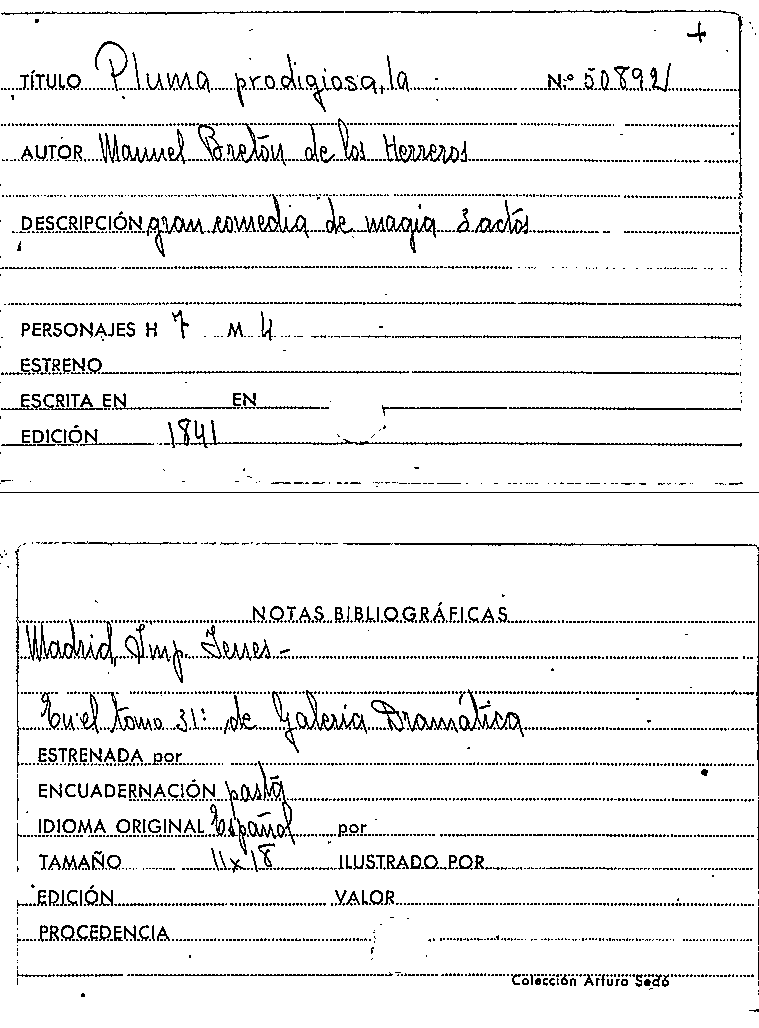 +
TÍTULO Pluma prodigiosa, la Nº 50892/
AUTOR Manuel Bretón de los Herreros
DESCRIPCIÓN gran comedia de magia 3 actos
PERSONAJES H 7 M 4
ESTRENO
ESCRITA EN EN
EDICIÓN 1841
NOTAS BIBLIOGRÁFICAS
Madrid, Imp. Yenes -
En el tomo 31: de Galería Dramática
ESTRENADA por
ENCUADERNACIÓN pasta
IDIOMA ORIGINAL Español por
TAMAÑO 11x18 ILUSTRADO POR
EDICIÓN VALOR
PROCEDENCIA
Colección Arturo Sedó